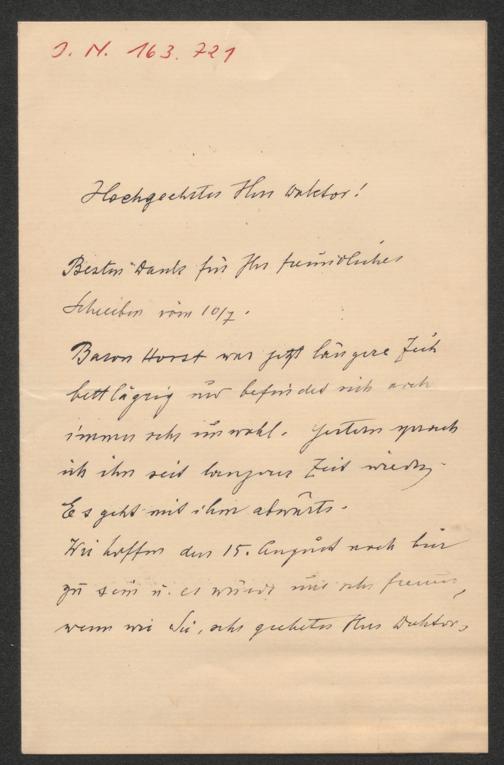 J. N. 163.721
Hochgeehrter Herr Doktor!
Besten Dank für Ihr freundliches
Schreiben vom 10/7.
Baron Horst war jetzt längere Zeit
bettlägrig und befindet sich auch
immer sehr unwohl. Gestern sprach
ich ihn seit längerer Zeit wieder.
Es geht mit ihm abwärts.
Wir hoffen den 15. August noch hier
zu sein u. es würde uns sehr freuen,
wenn wir Sie, sehr geehrter Herr Doktor,